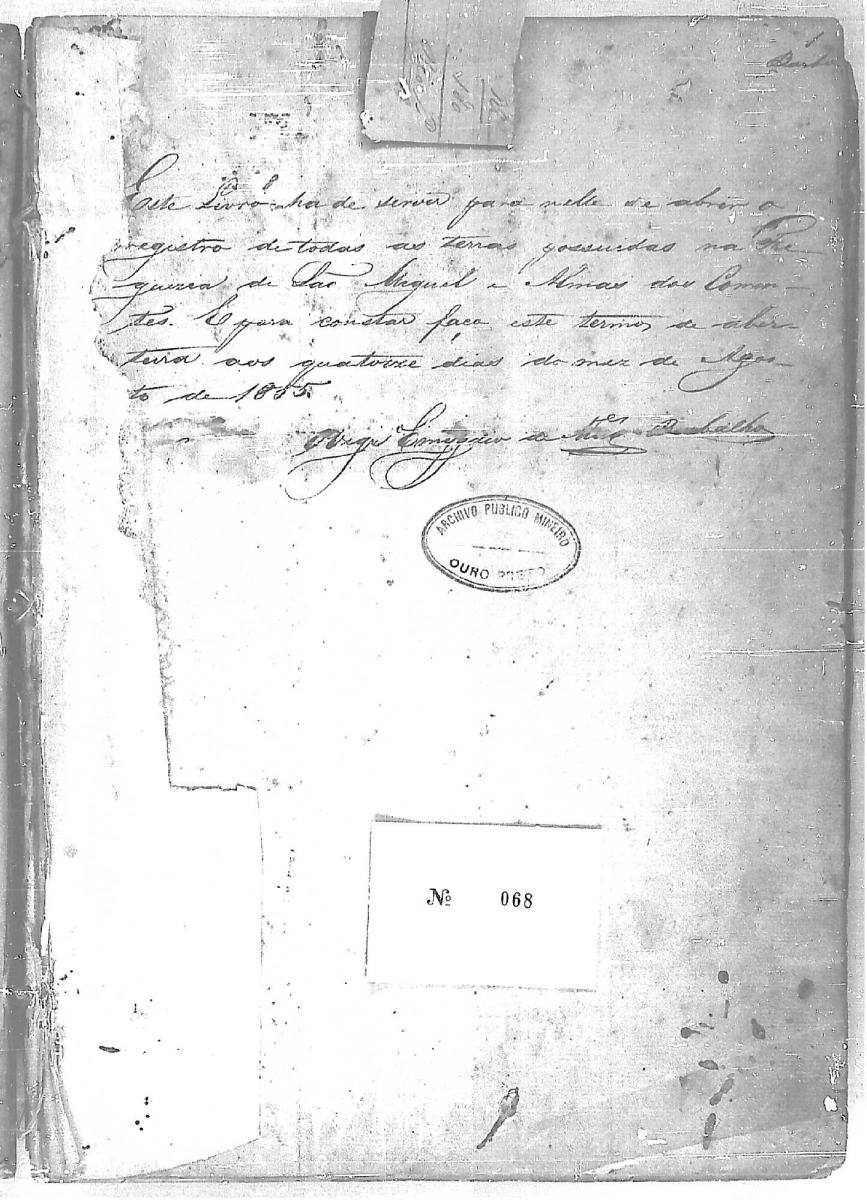 Este Livro ha de servir para nelle se abrir o
registro de todas as terras possuidas na Fre
guezia de São Miguel e Almas dos Commin-
tes. E para constar faço este termo, de aber-
tura aos quatorze dias do mez de Agos-
to de 1855.
Emygdio de
ARCHIVO PUBLICO MINEIRO
OURO PRETO
Nº 068